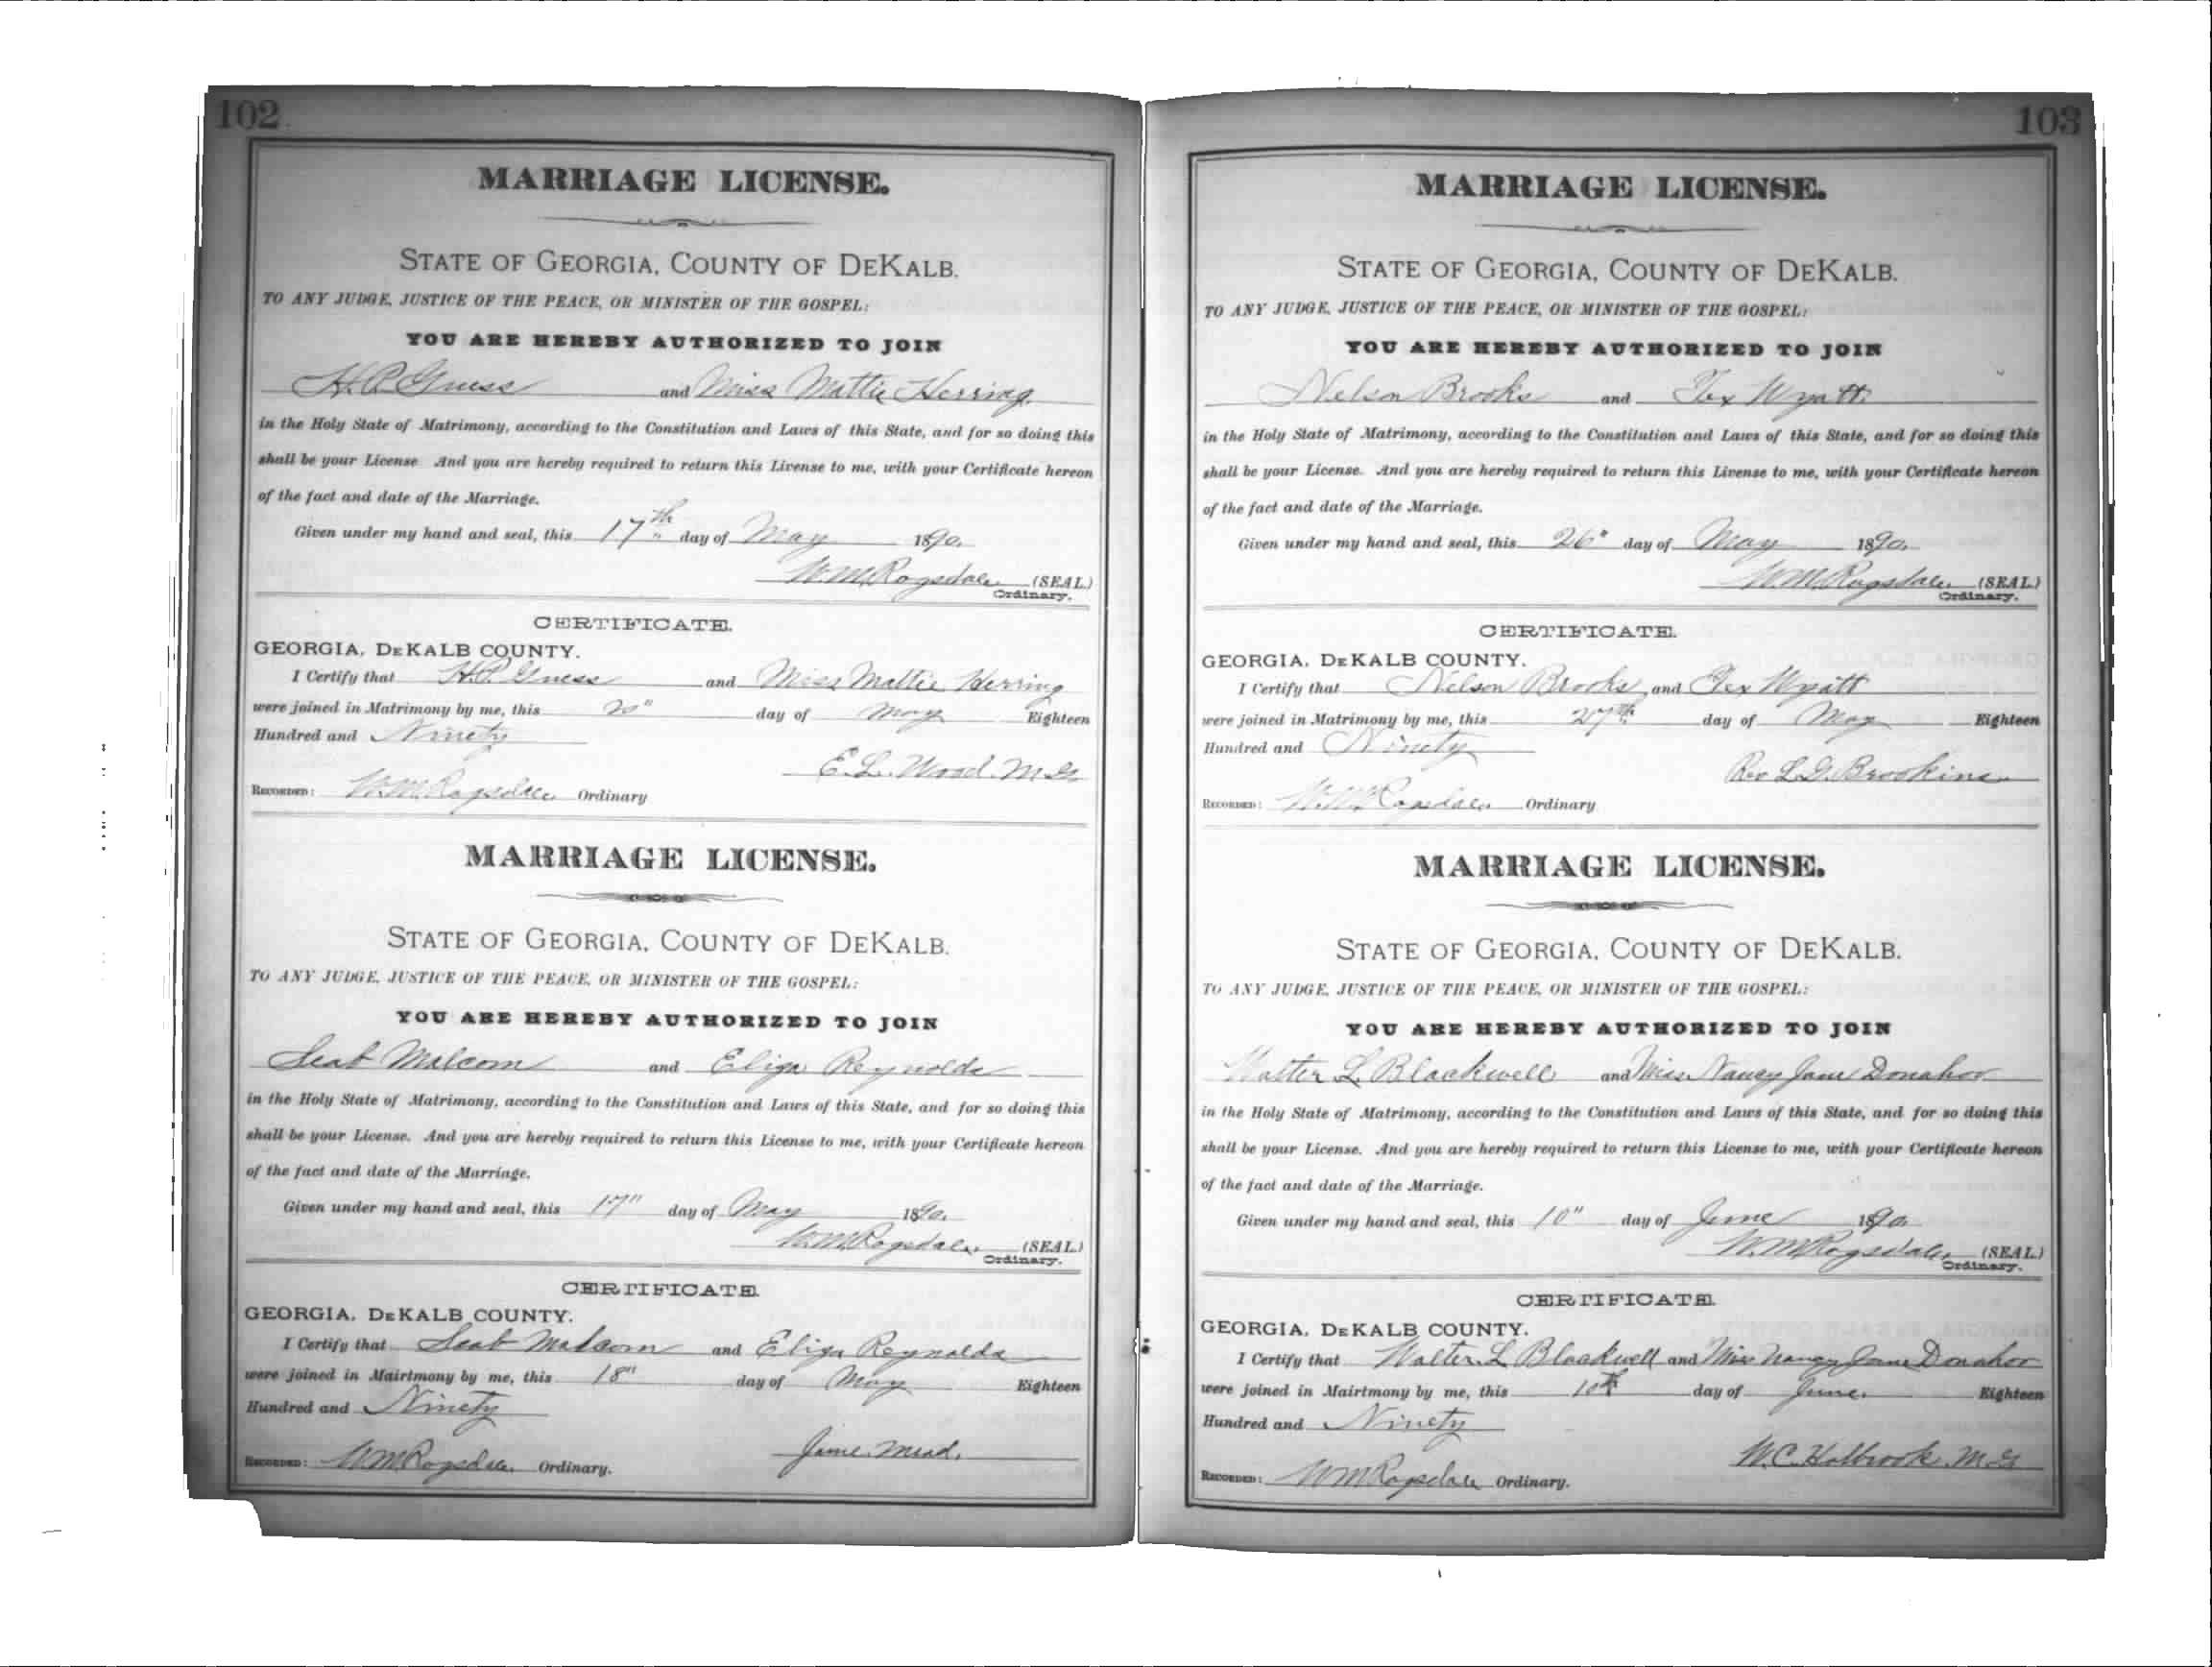 102
MARRIAGE LICENSE.
STATE OF GEORGIA, COUNTY OF DEKALB.
TO ANY JUDGE, JUSTICE OF THE PEACE, OR MINISTER OF THE GOSPEL:
YOU ARE HEREBY AUTHORIZED TO JOIN
H.P. Guess and Miss Mattie Herring
in the Holy State of Matrimony, according to the Constitution and Laws of this State, and for so doing this
shall be your License. And you are hereby required to return this License to me, with your Certificate hereon
of the fact and date of the Marriage.
Given under my hand and seal, this 17th day of May 1890.
W.M. Ragsdale (SEAL)
Ordinary.
CERTIFICATE.
GEORGIA, DEKALB COUNTY.
I Certify that H.P. Guess and Miss Mattie Herring
were joined in Matrimony by me, this 20" day of May Eighteen
Hundred and Ninety
E.L. Wood. M.G.
RECORDED: W.M. Ragsdale Ordinary
MARRIAGE LICENSE.
STATE OF GEORGIA, COUNTY OF DEKALB.
TO ANY JUDGE, JUSTICE OF THE PEACE, OR MINISTER OF THE GOSPEL:
YOU ARE HEREBY AUTHORIZED TO JOIN
Seab Malcom and Eliza Reynolds
in the Holy State of Matrimony, according to the Constitution and Laws of this State, and for so doing this
shall be your License. And you are hereby required to return this License to me, with your Certificate hereon
of the fact and date of the Marriage.
Given under my hand and seal, this 17" day of May 1890.
W.M. Ragsdale (SEAL)
Ordinary.
CERTIFICATE.
GEORGIA, DEKALB COUNTY.
I Certify that Seab Malcom and Eliza Reynolds
were joined in Mairtmony by me, this 18" day of May Eighteen
Hundred and Ninety
Mead.
RECORDED: W M Ragsdale Ordinary.
103
MARRIAGE LICENSE.
STATE OF GEORGIA, COUNTY OF DEKALB.
TO ANY JUDGE, JUSTICE OF THE PEACE, OR MINISTER OF THE GOSPEL:
YOU ARE HEREBY AUTHORIZED TO JOIN
Nelson Brooks and Tex Wyatt
in the Holy State of Matrimony, according to the Constitution and Laws of this State, and for so doing this
shall be your License. And you are hereby required to return this License to me, with your Certificate hereon
of the fact and date of the Marriage.
Given under my hand and seal, this 26" day of May 1890.
W.M. Ragsdale (SEAL)
Ordinary.
CERTIFICATE.
GEORGIA, DEKALB COUNTY.
I Certify that Nelson Brooks and Tex Wyatt
were joined in Matrimony by me, this 27th day of May Eighteen
Hundred and Ninety
Rev L.G. Brookins
RECORDED: W.M. Ragsdale Ordinary
MARRIAGE LICENSE.
STATE OF GEORGIA, COUNTY OF DEKALB.
TO ANY JUDGE, JUSTICE OF THE PEACE, OR MINISTER OF THE GOSPEL:
YOU ARE HEREBY AUTHORIZED TO JOIN
Walter L. Blackwell and Miss Nancy Jane Donahoo
in the Holy State of Matrimony, according to the Constitution and Laws of this State, and for so doing this
shall be your License. And you are hereby required to return this License to me, with your Certificate hereon
of the fact and date of the Marriage.
Given under my hand and seal, this 10" day of June 1890
W.M. Ragsdale (SEAL)
Ordinary.
CERTIFICATE.
GEORGIA, DEKALB COUNTY.
I Certify that Walter L Blackwell and Miss Nancy Jane Donahoo
were joined in Mairtmony by me, this 10th day of June. Eighteen
Hundred and Ninety
W.C. Holbrook. M.G
RECORDED: W M Ragsdale Ordinary.